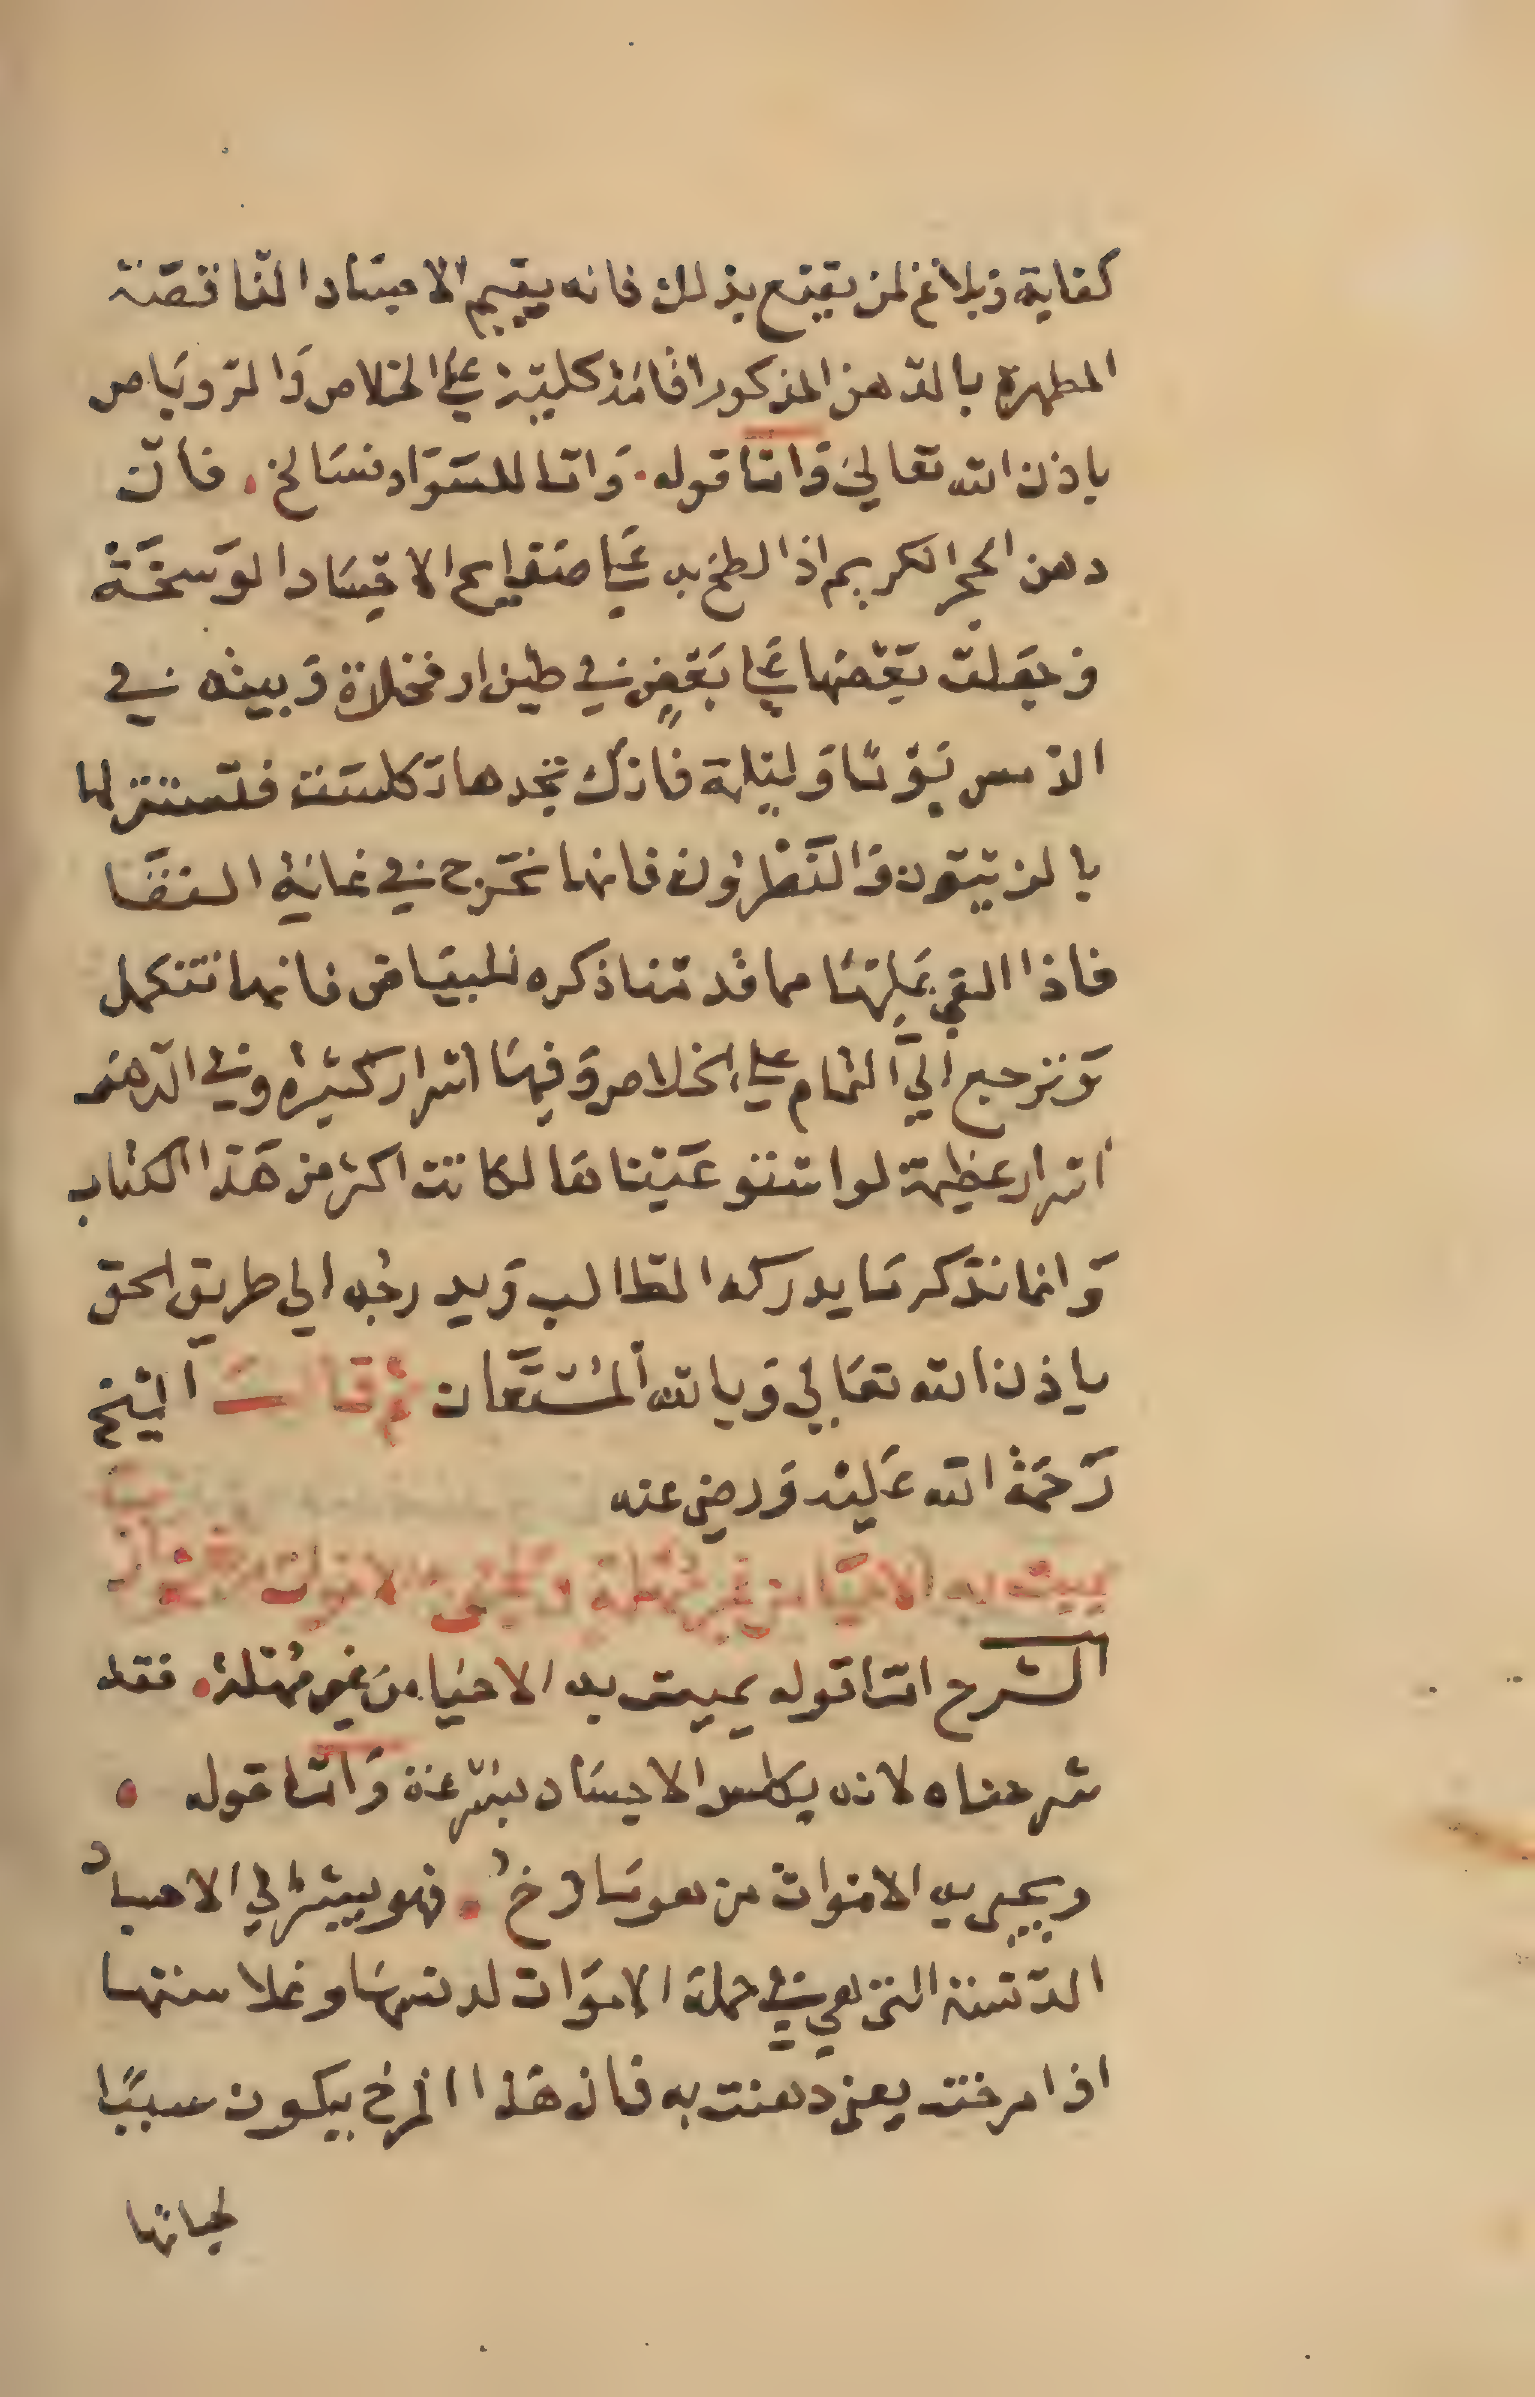 كفاية وبلاغ لمن يقنع بذلك فانه يقيم الاجساد الناقصة
المطهرة بالدهن المذكور اقامة كلية على الخلاص والروباص
باذن الله تعالى واما قوله واما للسواد فسالخ فان
دهن الحجر الكريم اذا لطخ به على صفايح الاجساد الوسخة
وجعلت بعضها على بعض في طين او فخارة وبيته في
الدمس يوما وليلة فانك تجدها تكلست فتستنزلها
بالزيتون والنطرون فانها تخرج في غاية النقا
فاذا القي عليها مما قدمنا ذكره للبياض فانها تتكمل
وترجع الى التمام على الخلاص وفيها اسرار كثيرة وفي الدهن
اسرار عظيمة لو استوعيناها لكانت اكثر من هذا الكتاب
وانما نذكر ما يدركه الطالب ويدرجه الى طريق الحق
باذن الله تعالى وبالله المستعان ثم قال الشيخ
رحمة الله عليه ورضي عنه
يميت به الاحيا من غير مهلة ويحيى به الاموات
الشرح اما قوله يميت به الاحيا من غير مهلة فقد
شرحناه لانه يكلس الاجساد بسرعة واما قوله
ويحيى به الاموات من هو مارخ فهو يشير الى الاجساد
الدنسة التي هي في جملة الاموات لدنسها وغلاستها
اذا مرخت يعني دهنت به فان هذا المرخ يكون سببا
لحياتها